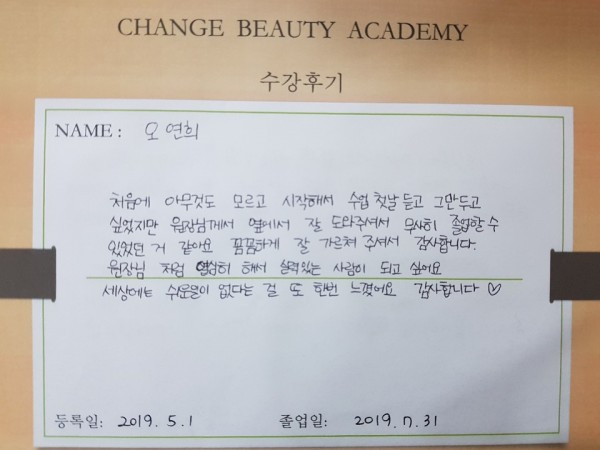 CHANGE BEAUTY ACADEMY
수강후기
NAME : 오연희
처음에 아무것도 모르고 시작해서 수업 첫날 듣고 그만두고
싶었지만 원장님께서 옆에서 잘 도와주셔서 무사히 졸업할 수
있었던 거 같아요 꼼꼼하게 잘 가르쳐 주셔서 감사합니다.
원장님 처럼 열심히 해서 실력있는 사람이 되고 싶어요
세상에는 쉬운일이 없다는 걸 또 한번 느꼈어요 감사합니다 ♡
등록일: 2019. 5. 1 졸업일: 2019. 7. 31